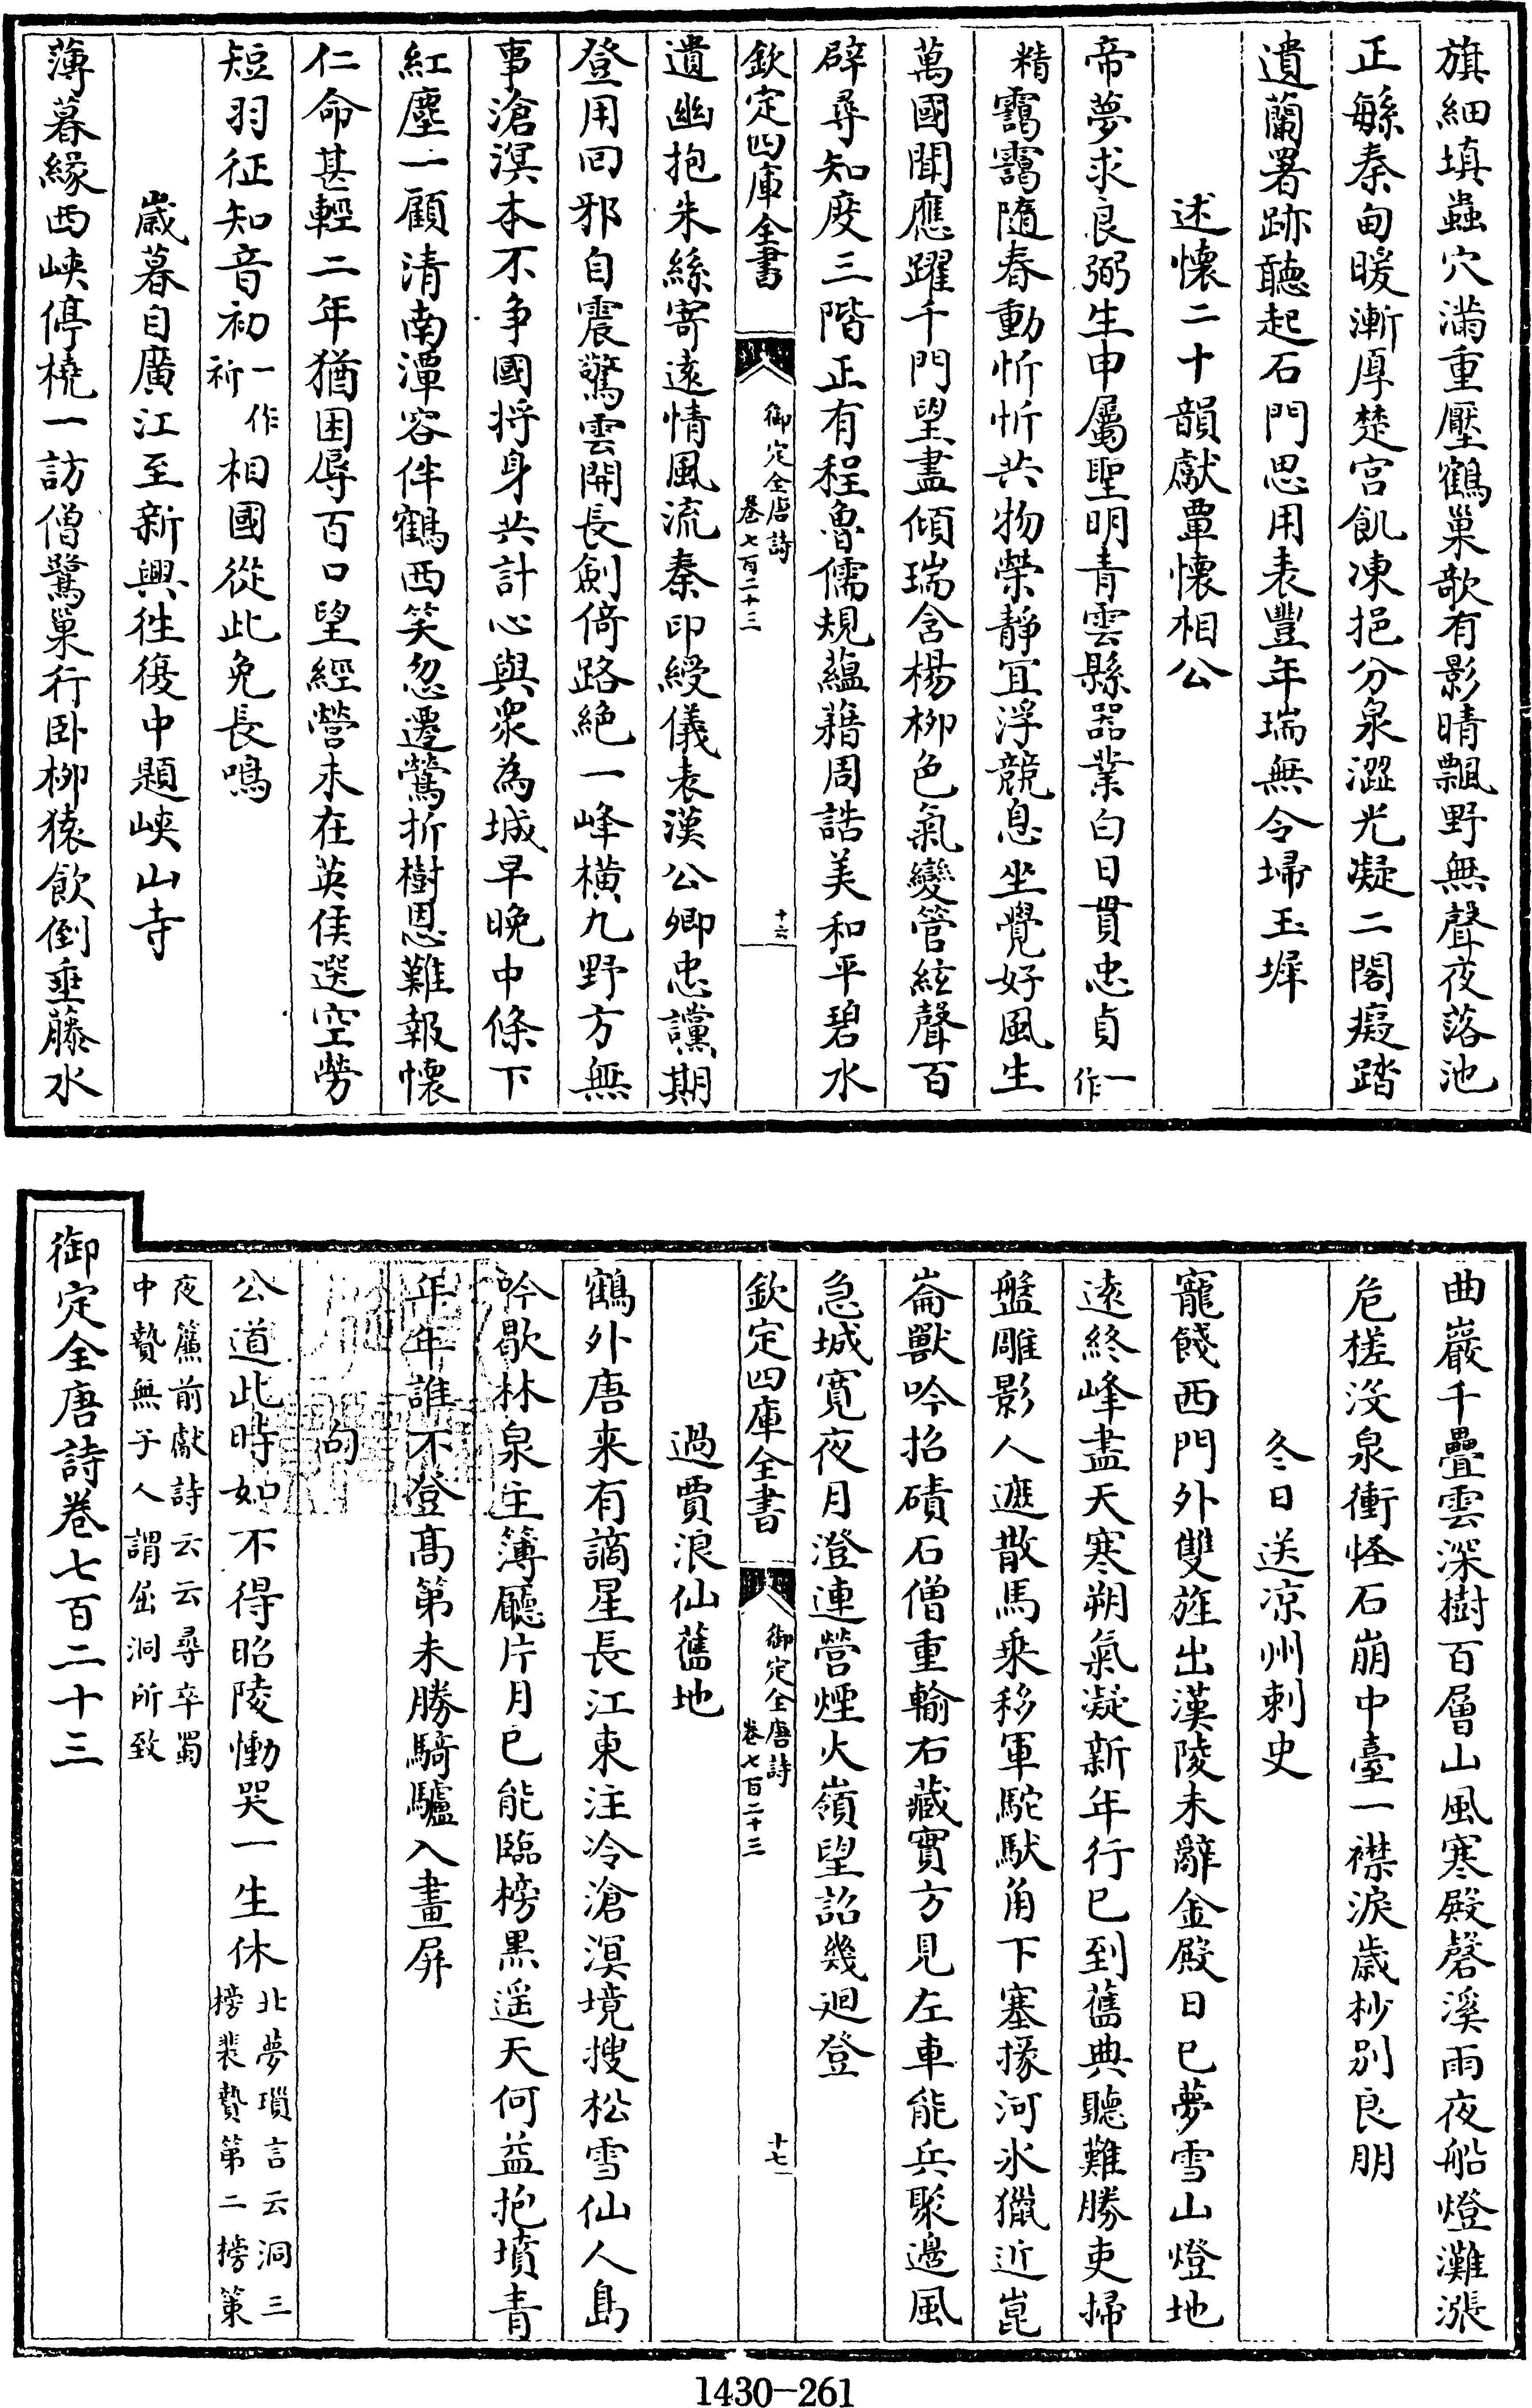 旗細填蟲穴滿重壓鶴巢欹有影晴飄野無聲夜落池
正繁秦甸暖漸厚楚宮飢凍挹分泉澀光凝二閣癡踏
遺蘭署跡聽起石門思用表豐年瑞無令埽玉墀
述懷二十韻獻覃懷相公
帝夢求良弼生申屬聖明青雲縣器業白日貫忠貞一作
精靄靄隨春動忻忻共物榮靜宜浮競息坐覺好風生
萬國聞應躍千門望盡傾瑞含楊柳色氣變管絃聲百
辟尋知度三階正有程魯儒規蘊藉周誥美和平碧水
欽定四庫全書
御定全唐詩
卷七百二十三
十六
遺幽抱朱絲寄遠情風流秦印綬儀表漢公卿忠讜期
登用回邪自震驚雲開長劍倚路絕一峰橫九野方無
事滄溟本不争國將身共計心與衆為城早晚中條下
紅塵一顧清南潭容伴鶴西笑忽遷鶯折樹恩難報懷
仁命甚輕二年猶困辱百口望經營未在英侯選空勞
短羽征知音初一作祈相國從此免長鳴
歲暮自廣江至新興徃復中題峽山寺
薄暮緣西峽停橈一訪僧鷺巢行卧柳猿飲倒垂藤水
曲巖千疊雲深樹百層山風寒殿磬溪雨夜船燈灘漲
危槎沒泉衝怪石崩中臺一襟淚歲杪別良朋
冬日送凉州刺史
寵餞西門外雙旌出漢陵未辭金殿日已夢雪山燈地
遠終峰盡天寒朔氣凝新年行已到舊典聽難勝吏掃
盤雕影人遮散馬乘移軍駝馱角下塞掾河氷獵近崑
崙獸吟招磧石僧重輸右藏實方見左車能兵聚邊風
急城寛夜月澄連營煙火嶺望詔幾迴登
欽定四庫全書
御定全唐詩
卷七百二十三
十七
過賈浪仙舊地
鶴外唐来有謫星長江東注冷滄溟境搜松雪仙人島
吟歇林泉主簿廳片月已能臨榜黒遥天何益抱墳青
年年誰不登高第未勝騎驢入畫屏
句
公道此時如不得昭陵慟哭一生休北夢瑣言云洞三榜裴贄第二榜策
夜簾前獻詩云云尋卒蜀中贄無子人謂屈洞所致
御定全唐詩卷七百二十三
1430-261